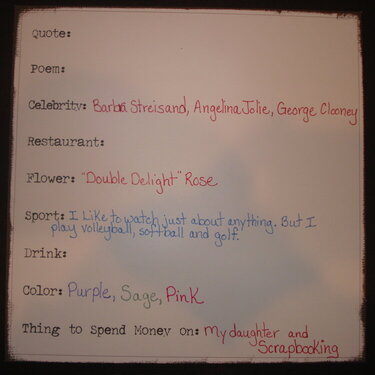 Quote:
Poem:
Celebrity: Barbra Streisand, Angelina Jolie, George Clooney
Restaurant:
Flower: "Double Delight" Rose
Sport: I Like to watch just about anything. But I
play volleyball, softball and golf.
Drink:
Color: Purple, Sage, Pink
Thing to Spend Money on: My daughter and
Scrapbooking